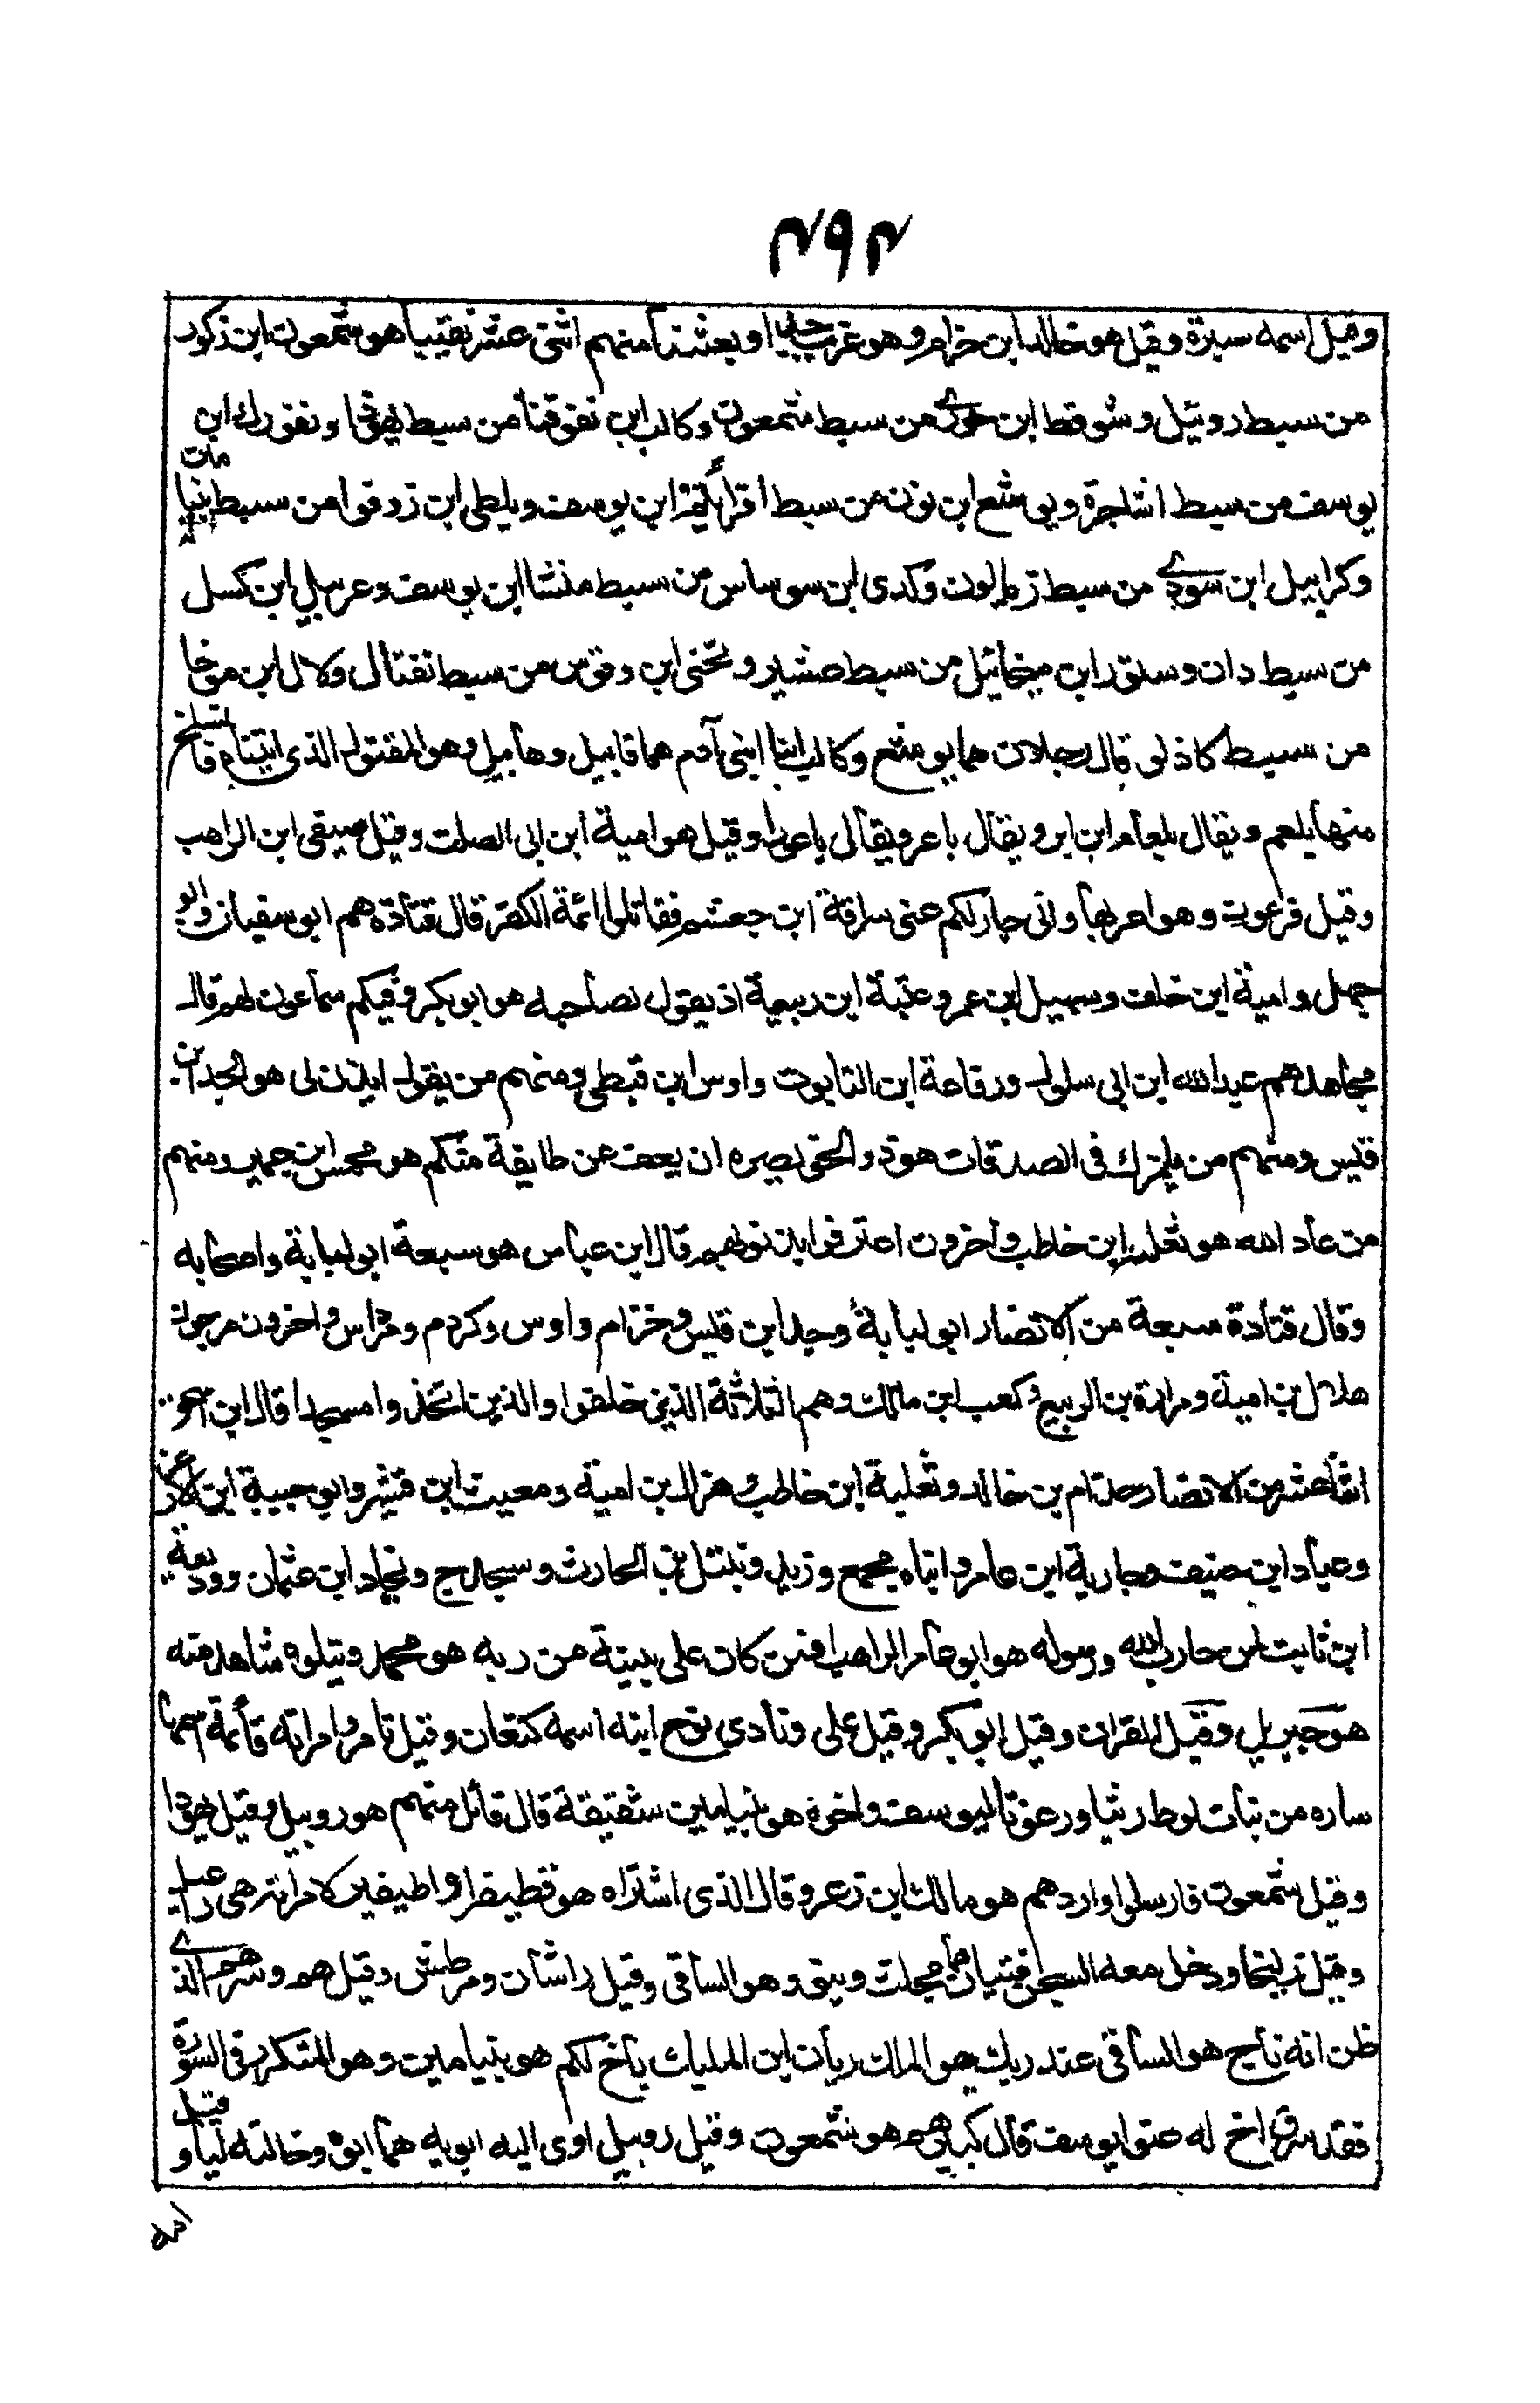 ٤٩٤
وقيل اسمه سبزة وقيل هو خالد ابن خزام وهو غريب جدا وبعثنا منهم اثنى عشر نقيبا هو شمعون ابن زكور
من سبط روئيل وشوقط ابن حورى من سبط شمعون وكالب ابن نفوقنا من سبط يهوذا ونفورك ابن
يوسف من سبط اشاجرة ويوشع ابن نون من سبط افرائيم ابن يوسف ويلطى ابن زوفوا من سبط بنيامين
وكرابيل ابن سودى من سبط زبالون وكدى ابن سوساس من سبط منشا ابن يوسف وعرسيل ابن كسل
من سبط دان وستور ابن ميخائيل من سبط صشير ويحنى ابن وقوس من سبط نفتال ولال ابن موخا
من سبط كاذلو قال رجلان هما يوشع وكالب ابنا ابنى آدم هما قابيل وهابيل وهو المقتول الذى اتيناه فانسلخ
منها بلعم ويقال بلعام ابن ابر ويقال باعر ويقال باعورا وقيل هو امية ابن ابى الصلت وقيل صيفى ابن الراهب
وقيل فرعون وهو اغربها وانى جار لكم عنى سراقة ابن جعشم فقاتلوا ائمة الكفر قال قتادة هم ابو سفيان وابو
جهل وامية ابن خلف وسهيل ابن عمر وعتبة ابن ربيعة اذ يقول لصاحبه هو ابو بكر وفيكم سماعون لهم قال
مجاهد هم عبد الله ابن ابى سلول ورفاعة ابن التابوت واوس ابن قبطى ومنهم من يقول ايذن لى هو الجد ابن
قيس ومنهم من يلمزك فى الصدقات هو ذو الخويصره ان يعف عن طايفة منكم هو محمس ابن حمير ومنهم
من عاد الله هو ثعلبة ابن خاطب وآخرون اعترفوا بذنوبهم قال ابن عباس هو سبعة ابو لبابة واصحابه
وقال قتادة سبعة من الانصار ابو لبابة وجد ابن قيس وخزام واوس وكردم ومرداس وآخرون مرجون
هلال بن امية ومرارة بن الربيع وكعب ابن مالك وهم الثلاثة الذين خلفوا والذين اتخذوا مسجدا قال ابن اسحق
اثنا عشر من الانصار خذام بن خالد وثعلبة ابن خاطب وهزال بن امية ومعيت ابن قشير وابو حبيبة ابن الازعر
وعباد ابن حنيف وجارية ابن عامر وابناه مجمع وزيد ونبتل بن الحارث وسيحدج ونجاد ابن عثمان ووديعة
ابن ثابت لمن حارب الله ورسوله هو ابو عامر الراهب افمن كان على بينة من ربه هو محمد ويتلوه شاهد منه
هو جبريل وقيل القران وقيل ابو بكر وقيل على ونادى نوح ابنه اسمه كنعان وقيل يام وامراته قائمة اسمها
ساره من بنات لوط رثيا ورعوثا ليوسف واخوه هو بنيامين شقيقة قال قائل منهم هو روبيل وقيل يهوذا
وقيل شمعون فارسلوا واردهم هو مالك ابن زعر وقال الذى اشتراه هو قطيفر او اطيفير لامراته هى راعيل
وقيل زليخا ودخل معه السجن فتيان هما مجلت وبيق وهو الساقى وقيل راشان ومرطيش وقيل هم وشرهم الذى
ظن انه ناج هو الساقى عند ربك هو الملك ريان ابن المليك باخ لكم هو بنيامين وهو المتكرر فى السورة
فقد سرق اخ له عنو ايوسف قال كبيرهم هو شمعون وقيل روبيل اوى اليه ابويه هما ابوه وخالته ليا وقيل
امه